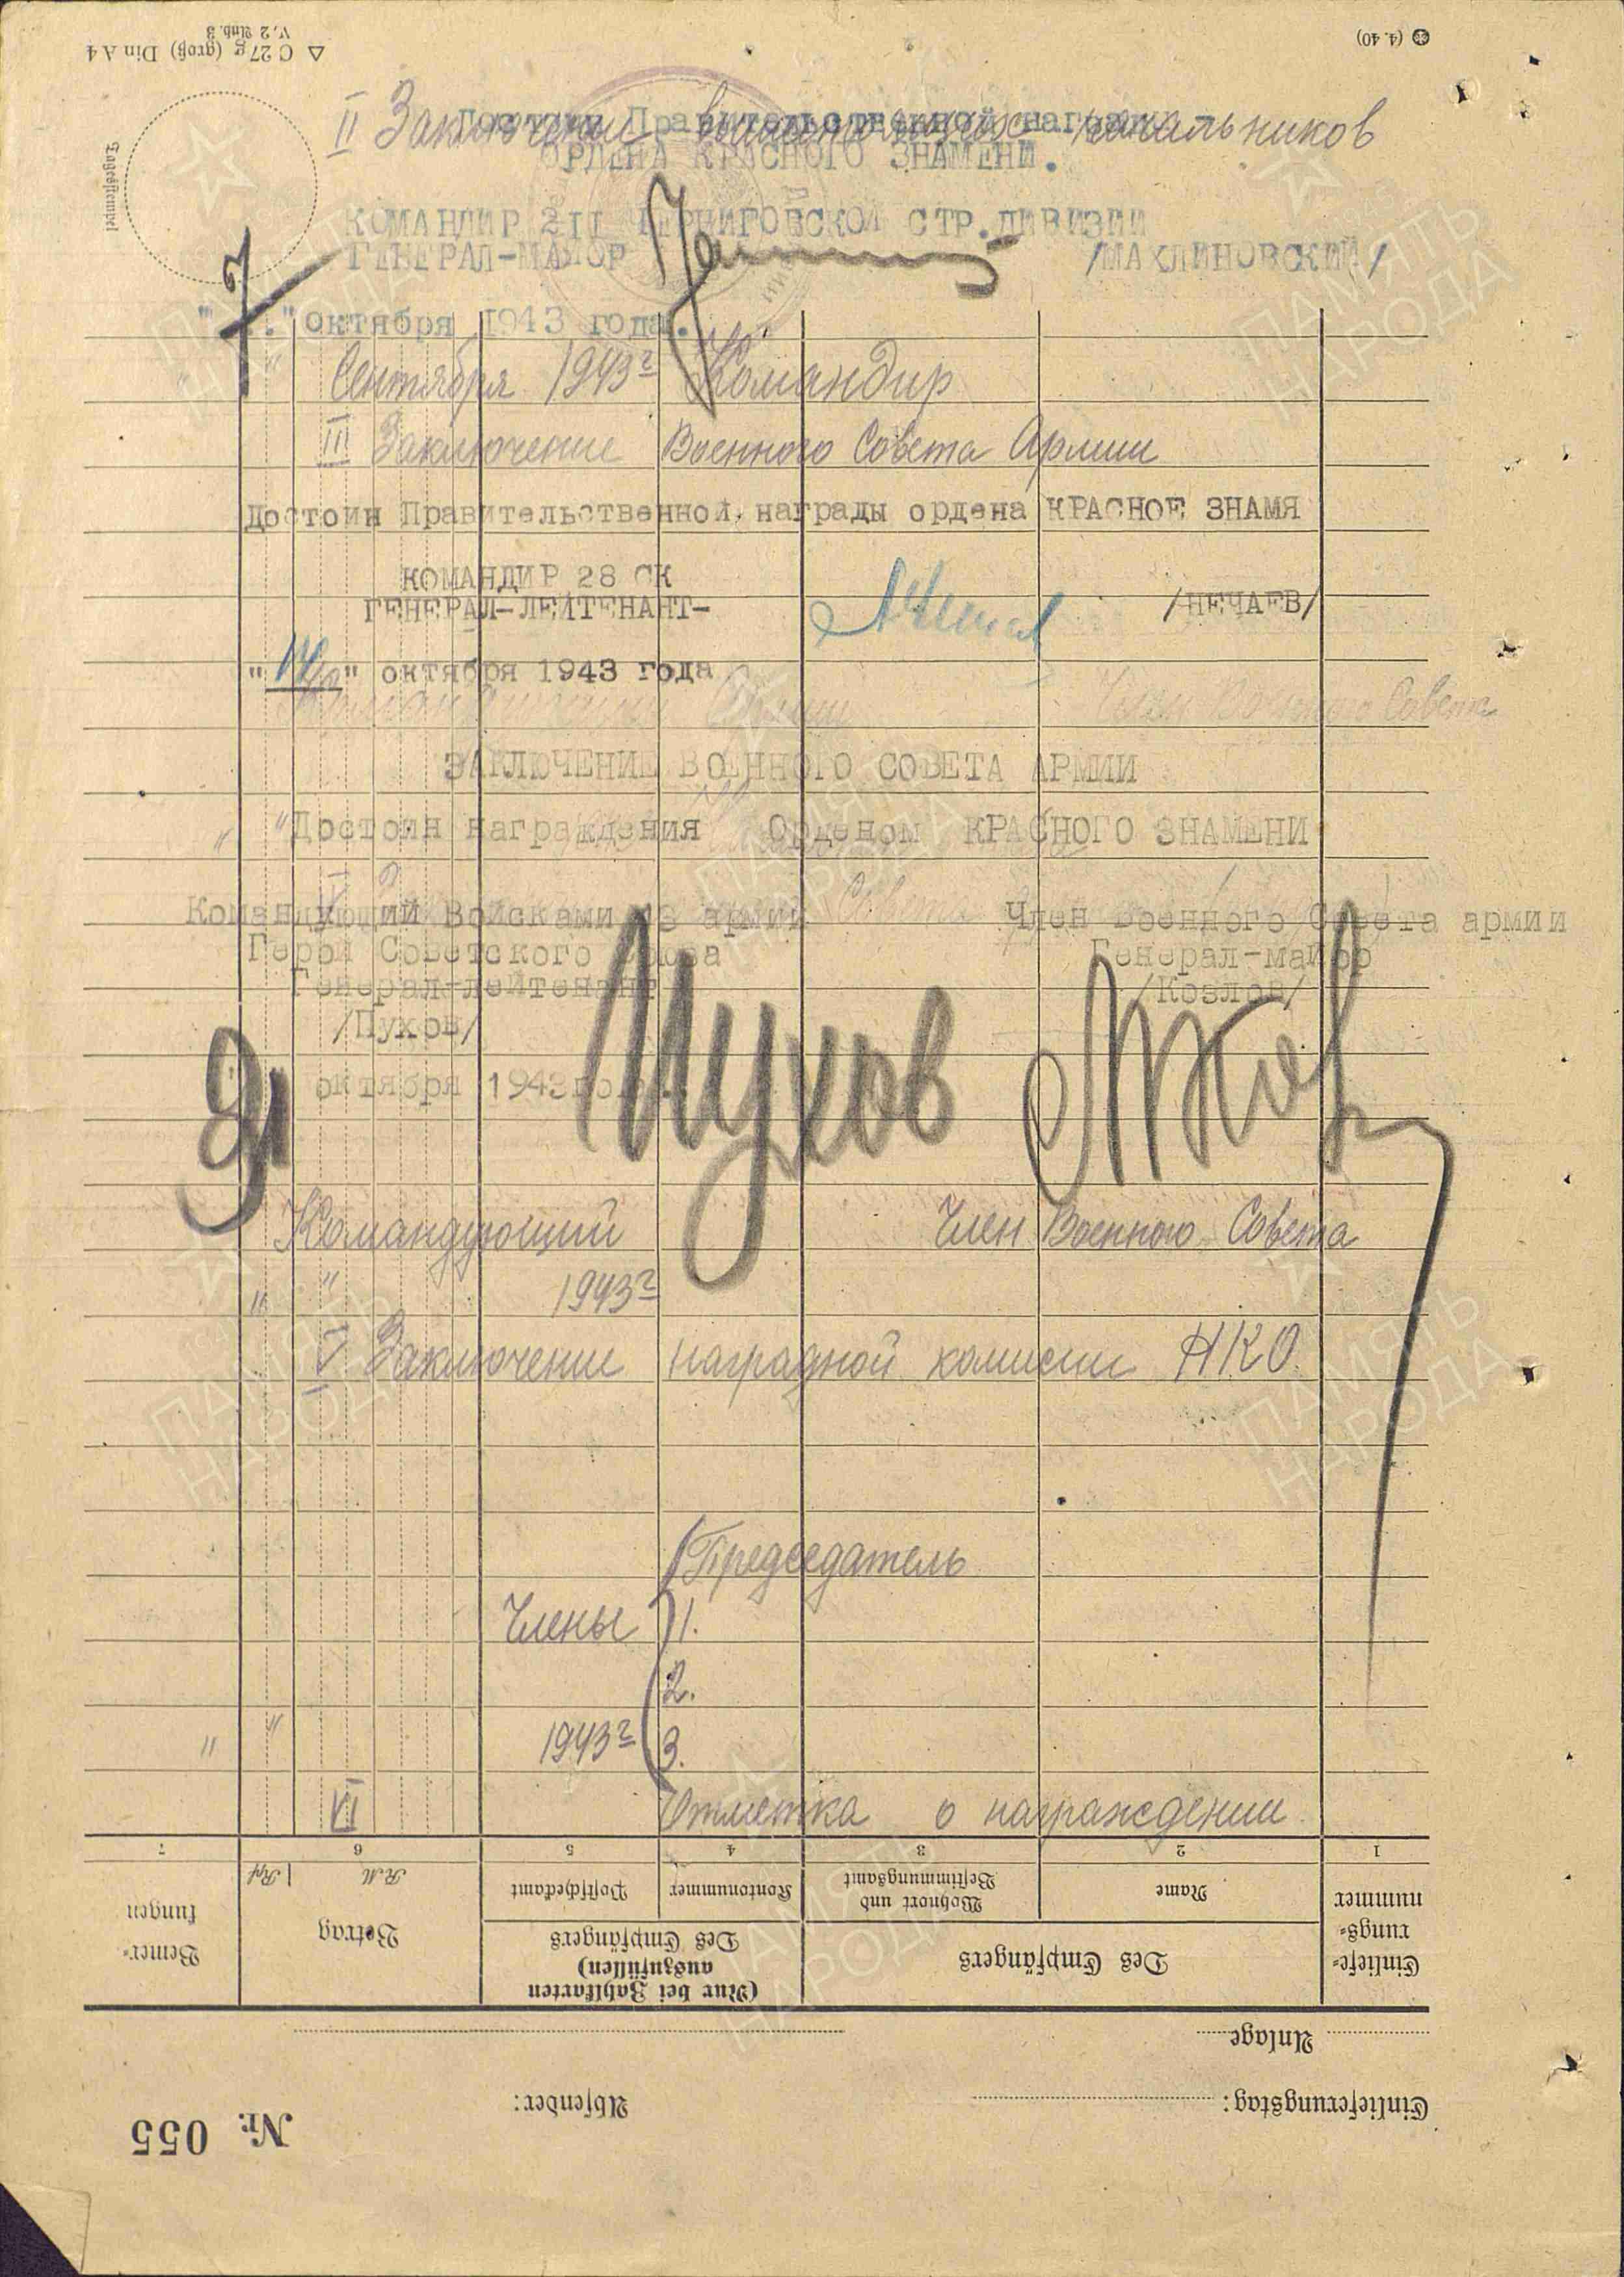 (4. 40)
C 27 g (groß) Din A 4
V, 2 Anl. 3
Tagesstempel
II Заключение вышестоящих начальников
Достоин Правительственной награды
ОРДЕНА КРАСНОГО ЗНАМЕНИ.
КОМАНДИР 211 ЧЕРНИГОВСКОЙ СТР.ДИВИЗИИ
ГЕНЕРАЛ-МАЙОР /МАХЛИНОВСКИЙ/
"7" октября 1943 года.
" " Сентября 1943 г Командир
III Заключение Военного Совета Армии
Достоин Правительственной награды ордена КРАСНОЕ ЗНАМЯ
КОМАНДИР 28 СК
ГЕНЕРАЛ-ЛЕЙТЕНАНТ- /НЕЧАЕВ/
" " октября 1943 года
Командующий Армии Член Военного Совета
ЗАКЛЮЧЕНИЕ ВОЕННОГО СОВЕТА АРМИИ
"Достоин награждения Орденом КРАСНОГО ЗНАМЕНИ
Командующий Войсками 13 армии Член Военного Совета армии
Герой Советского Союза Генерал-майор
Генерал-лейтенант /Козлов/
/Пухов/
Пухов
октября 1943 года.
Командующий Член Военного Совета
" " 1943 г
V Заключение наградной комиссии НКО
Председатель
Члены 1.
2.
" " 1943 г 3.
VI Отметка о награждении
1 2 3 4 5 6 7
Einliefe-
rungs-
nummer
Des Empfängers
Name
Wohnort und
Bestimmungsamt
(Nur bei Zahlkarten
auszufüllen)
Des Empfängers
Kontonummer
Postscheckamt
Betrag
RM Rpf
Bemer-
kungen
Anlage
Einlieferungstag: Absender:
Nr. 055
ПАМЯТЬ
НАРОДА